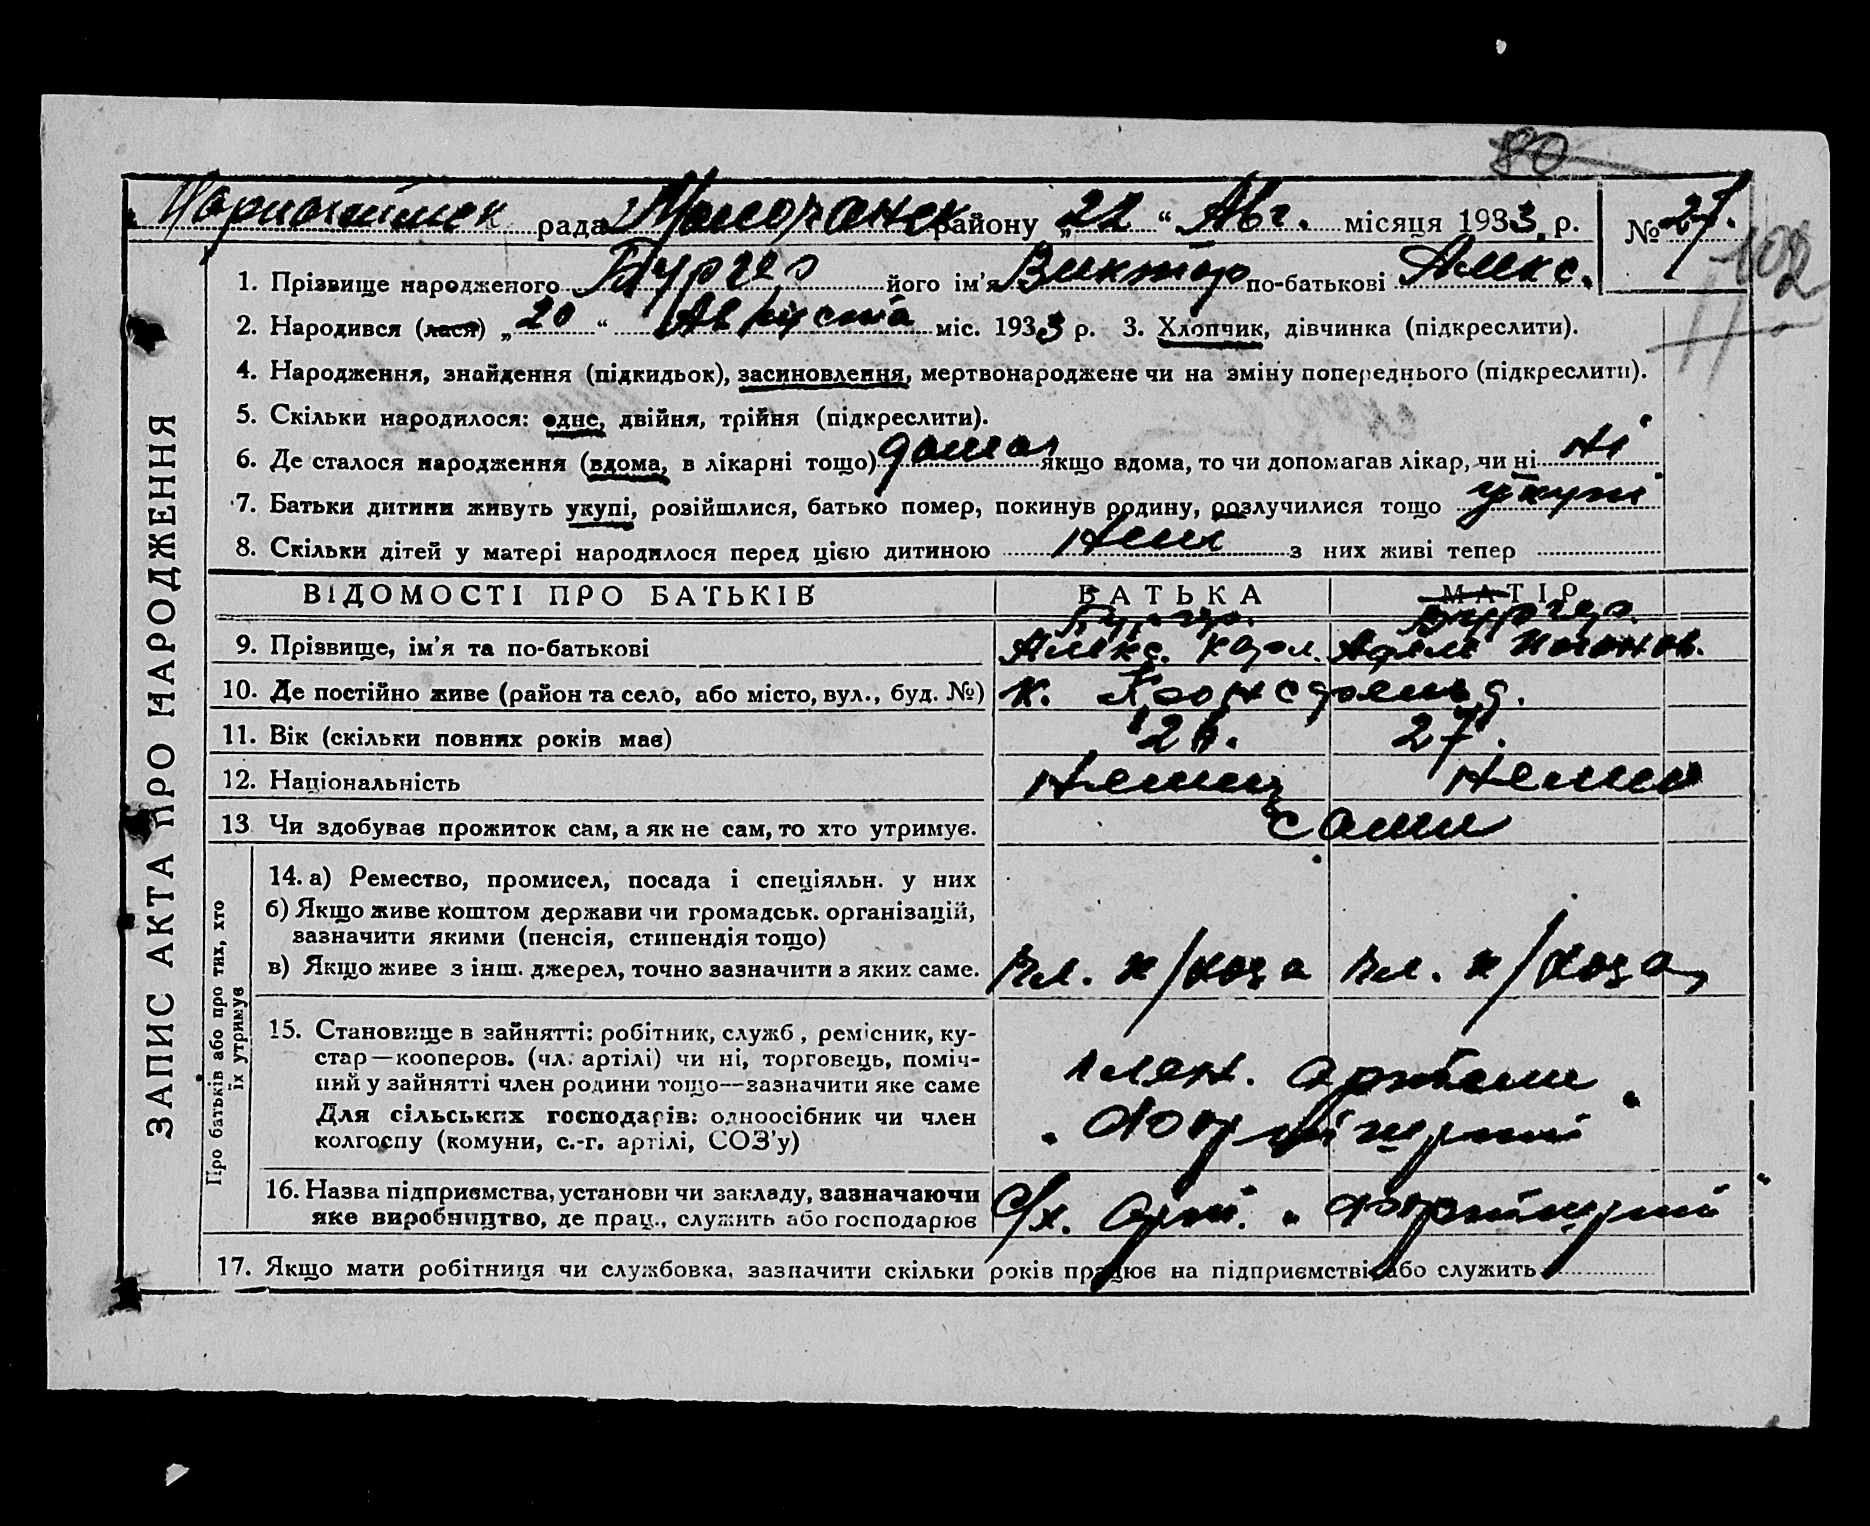 80
рада району „22“ Авг. місяця 1933. р. № 27.
102
1. Прізвище народженого Бургер його ім'я Виктор по-батькові Алекс.
2. Народився (лася) „20“ Августа міс. 1933 р. 3. Хлопчик, дівчинка (підкреслити).
4. Народження, знайдення (підкидьок), засиновлення, мертвонароджене чи на зміну попереднього (підкреслити).
5. Скільки народилося: одне, двійня, трійня (підкреслити).
6. Де сталося народження (вдома, в лікарні тощо) дома якщо вдома, то чи допомагав лікар, чи ні ні
7. Батьки дитини живуть укупі, розійшлися, батько помер, покинув родину, розлучилися тощо укупі
8. Скільки дітей у матері народилося перед цією дитиною з них живі тепер
ЗАПИС АКТА ПРО НАРОДЖЕННЯ
ВІДОМОСТІ ПРО БАТЬКІВ БАТЬКА МАТІР
Бургер. Бургер.
9. Прізвище, ім'я та по-батькові Алекс. Карл.
10. Де постійно живе (район та село, або місто, вул., буд. №) к.
11. Вік (скільки повних років має) 27.
12. Національність Немец Немка
13 Чи здобував прожиток сам, а як не сам, то хто утримує. сами
Про батьків або про тих, хто
їх утримує
14. а) Ремество, промисел, посада і спеціяльн. у них
б) Якщо живе коштом держави чи громадськ. організацій,
зазначити якими (пенсія, стипендія тощо)
в) Якщо живе з інш. джерел, точно зазначити з яких саме. Чл. к/хоза Чл. к/хоза
15. Становище в зайнятті: робітник, служб, ремісник, ку-
стар—кооперов. (чл. артілі) чи ні, торговець, поміч-
ний у зайнятті член родини тощо—зазначити яке саме член. артели
Для сільських господарів: одноосібник чи член
колгоспу (комуни, с.-г. артілі, СОЗ'у)
16. Назва підприємства, установи чи закладу, зазначаючи
яке виробництво, де прац., служить або господарює С/х. арт.
17. Якщо мати робітниця чи службовка, зазначити скільки років працює на підприємстві або служить